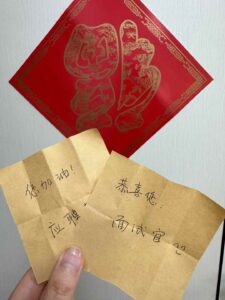 您加油!
应聘
恭喜您!
面试官